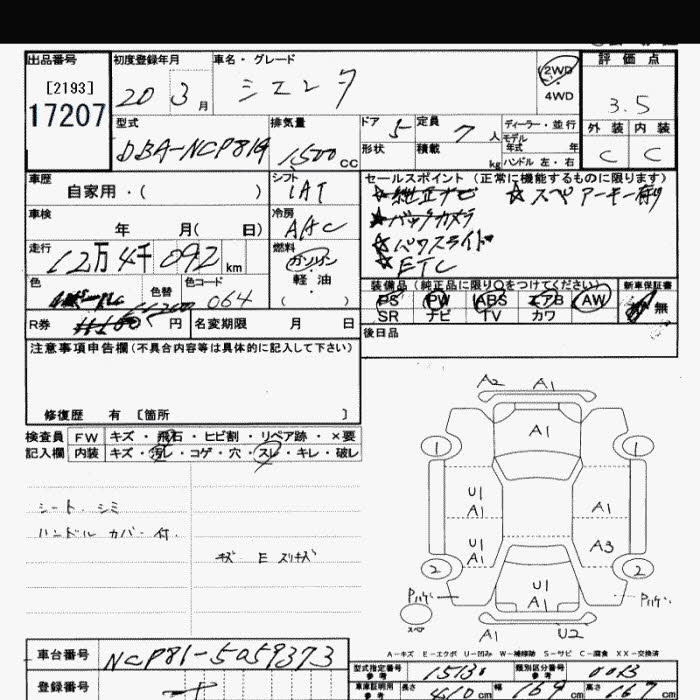 出品番号 初度登録年月 車名・グレード 2WD 評価点
[2193]
17207 20 3月 シエンタ 4WD 3.5
型式 排気量 ドア 5 定員 7人 ディーラー・並行 外装 内装
DBA-NCP81G 1500cc 形状 積載 kg モデル年式 年 C C
ハンドル 左・右
車歴 シフト セールスポイント(正常に機能するものに限ります)
自家用・( ) IAT ☆純正ナビ ☆スペアーキー有り
車検 冷房 ☆バックカメラ
年 月( 日) AAC ☆パワスライド
走行 燃料 ☆ETC
12万4千092km ガソリン
色 色替 色コード 軽油 装備品(純正品に限り○をつけてください) 新車保証書
064 ( ) PS PW ABS エアB AW 無
R券 円 名変期限 月 日 SR ナビ TV カワ
注意事項申告欄(不具合内容等は具体的に記入して下さい) 後日品
修復歴 有 [箇所 ]
検査員 FW キズ・飛石・ヒビ割・リペア跡・×要
記入欄 内装 キズ・汚レ・コゲ・穴・スレ・キレ・破レ
シート シミ
ハンドル カバー 付
キズ E スリキズ
A2 A1
A1
1 1
U1 A1
A1
U1 A3
A1
2 2
U1
A1
スペア
A1 U2
A-キズ E-エクボ U-凹み W-補修跡 S-サビ C-腐食 XX-交換済
車台番号 NCP81-5059373 型式指定番号 参考 類別区分番号 参考 0013
登録番号 車庫証明用 参考 長さ 410cm 幅 169cm 高さ cm